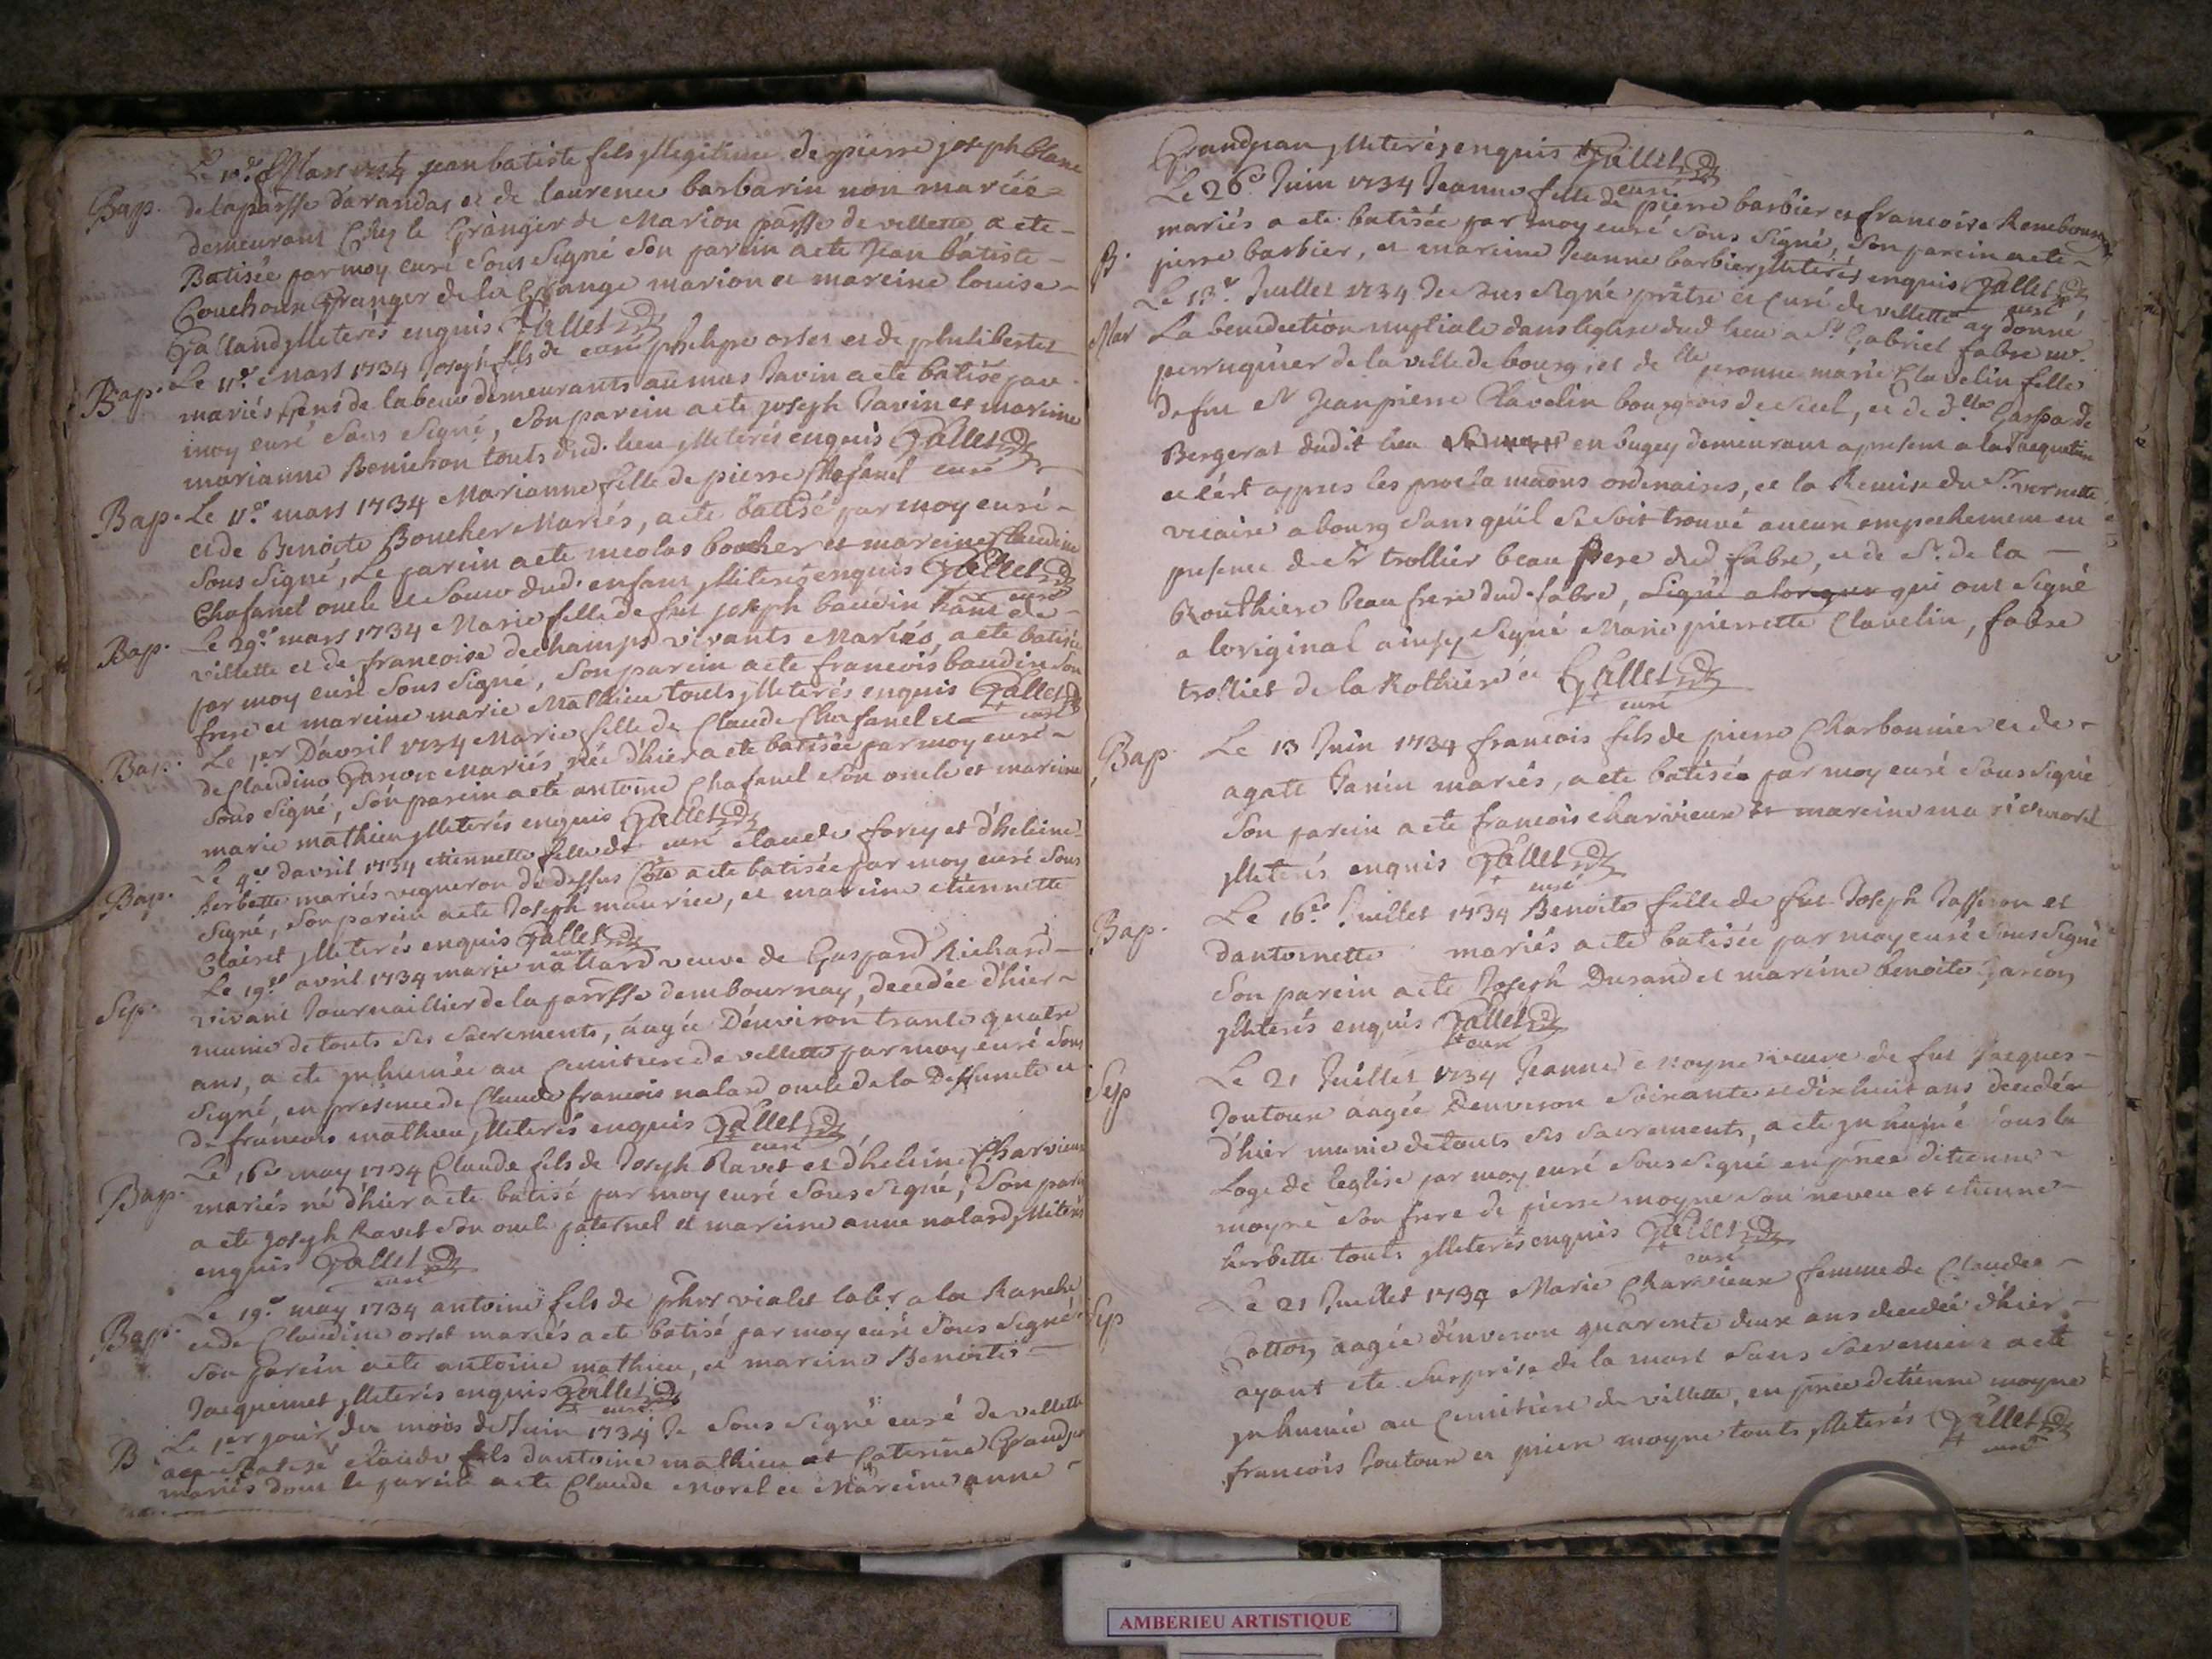 Bap. Le 10e Mars 1734 jean batiste fils yllegitime de pierre joseph blanc
de la parsse darandas et de laurence barbarin non mariés
demeurant chez le Grangier de Marion parsse de villette a ete
Batisée par moy curé sous signé son parein a ete Jean batiste
Couchoux Granger de la Grange marion et mareine louise
Galland ylleterés enquis Gallet curé
Bap. Le 11e Mars 1734 Joseph fils de philipe orset et de philiberte
mariés gens de labeur demeurants au mas Javin a ete batisé par
moy curé sous signé, son parein a ete joseph Javin et mareine
marianne Bonichon touts dud. lieu ylleterés enquis Gallet curé
Bap. Le 11e mars 1734 Marianne fille de pierre Chafanel
et de Benoite Boucher Mariés, a ete batisé par moy curé
sous signé, Le parein a ete nicolas boucher et mareine Claudine
Chafanel oncle et soeur dud. enfant ylleterés enquis Gallet curé
Bap. Le 29e mars 1734 Marie fille de fut joseph baudin de
villette et de francoise dechamps vivants Mariés, a ete batisée
par moy curé sous signé, son parein a ete francois baudin son
frere et mareine marie Mathieu touts ylleterés enquis Gallet curé
Bap. Le 1er Davril 1734 Marie fille de Claude Chafanel et
de Claudine Ganon Mariés, née d'hier a ete batisée par moy curé
sous signé, son parein a ete antoine Chafanel son oncle et mareine
marie mathieu ylleterés enquis Gallet curé
Bap. Le 4e davril 1734 etiennette fille de claude forey et d'heleine
herbette mariés vigneron de dessus Côte a ete batisée par moy curé sous
signé, son parein a ete Joseph maurice, et mareine etiennette
Clairet ylleterés enquis Gallet curé
Sep. Le 19e avril 1734 marie nallard veuve de Gaspard Richard
vivant Journaillier de la parrsse dembournay, decedée d'hier
munie de touts ses sacrements, aagée Denviron trante quatre
ans, a ete ynhumée au cemitiere de villette par moy curé sous
signé, en presence de Claude francois nalard oncle de la Deffuncte et
de francois mathieu ylleterés enquis Gallet curé
Bap. Le 16e may 1734 Claude fils de Joseph Ravet et d'heleine Charvieux
mariés né d'hier a ete batisé par moy curé sous signé, son parein
a ete joseph Ravet son oncle paternel et mareine anne nalard ylleterés
enquis Gallet curé
Bap. Le 19e may 1734 antoine fils de phre violet labr a la Ranche
et de Claudine orset mariés a ete batisé par moy curé sous signé
son parein a ete antoine mathieu, et mareine Benoite
Jacquemet ylleterés enquis Gallet curé
B Le 1er jour du mois de Juin 1734 Je sous signé curé de villette
ay batisé claude fils dantoine mathieu et Caterine Grandjean
mariés dont le parein a ete Claude Morel et Mareine anne
Grandjean ylleterés enquis Gallet curé
B. Le 26e Juin 1734 Jeanne fille de pierre barbier et francoise
mariés a ete batisée par moy curé sous signé, son parein a ete
pierre barbier, et mareine Jeanne barbier ylleterés enquis Gallet curé
Mar Le 13e Juillet 1734 Je sous signé prêtre et curé de villette ay donné
La benediction nuptiale dans leglise dud lieu a Sr Gabriel fabre mr.
perruquier de la ville de bourg, et de dlle peronne marie Clavelin fille
de fut Sr Jean pierre Clavelin bourgeois de, et de dlle Gasparde
Bergerat dudit lieu en bugey demeurant a present a la
et c'est appres les proclamaons ordinaires, et la Remise du Sr vernette
vicaire a bourg sans quïl se soit trouvé aucun empechement en
presence de Sr trollier beau frere dud fabre, et de Sr. de la
Routhiere beau frere dud. fabre, signé a lorginer qui ont signé
a loriginal ainsy signé Marie pierrette Clavelin, fabre
trolliet de la Rothiere et Gallet curé
Bap Le 13 Juin 1734 francois fils de pierre Charbonnier et de
agate Janin mariés, a ete batisée par moy curé sous signé
son parein a ete francois charvieux et mareine marie morel
ylleterés enquis Gallet curé
Bap. Le 16e Juillet 1734 Benoite fille de fut Joseph Jasseron et
dantoinette mariés a ete batisée par moy curé sous signé
son parein a ete Joseph Durand et mareine benoite Garcon
ylleterés enquis Gallet curé
Sep Le 21 Juillet 1734 Jeanne moyne veuve de fut Jacques
Joutoux aagée Denviron soixante et dix huit ans decedée
d'hier munie de touts ses sacrements, a ete ynhumé sous la
Loge de leglise par moy curé sous signé en prnce detienne
moyne son frere de pierre moyne son neveu et etienne
herbette touts ylleterés enquis Gallet curé
Sep Le 21 Juillet 1734 Marie Charvieux femme de Claude
Cotton aagée d'environ quarente deux ans decedée d'hier
ayant ete surprise de la mort sans sacrement a ete
ynhumée au cemitiere de villette, en prnce detienne moyne
francois Joutoux et pierre moyne touts ylleterés Gallet curé
AMBERIEU ARTISTIQUE